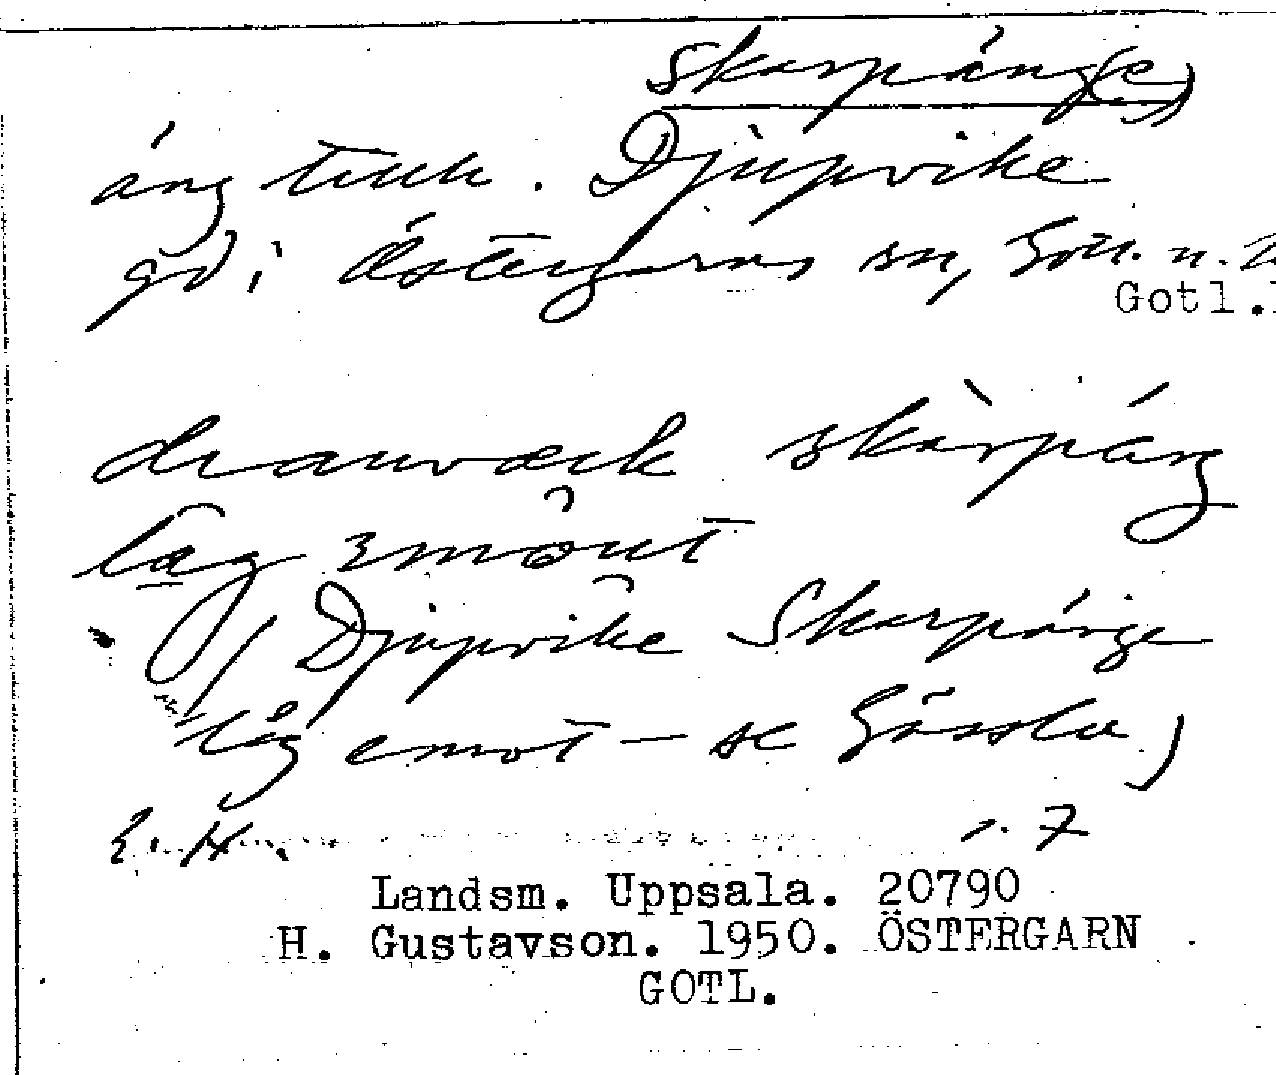 Skarpäng(e)
äng tillh. Djupvike
gd i Östergarns sn, Gotl. n.
Gotl.
skàrpáŋ
låg
( Djupvike Skarpänge
låg emot – se Gässlu )
E. H. s. 7
Landsm. Uppsala. 20790
H. Gustavson. 1950. ÖSTERGARN
GOTL.